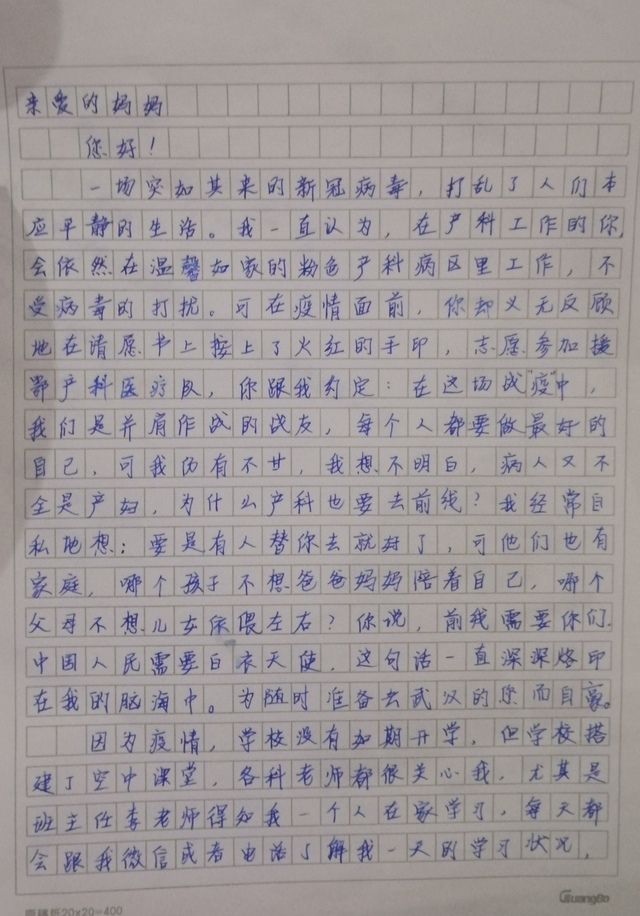 亲爱的妈妈
您好！
一场突如其来的新冠病毒，打乱了人们本
应平静的生活。我一直认为，在产科工作的你，
会依然在温馨如家的粉色产科病区里工作，不
受病毒的打扰。可在疫情面前，你却义无反顾
地在请愿书上按上了火红的手印，志愿参加援
鄂产科医疗队，你跟我约定：在这场战"疫"中，
我们是并肩作战的战友，每个人都要做最好的
自己，可我仍有不甘，我想不明白，病人又不
全是产妇，为什么产科也要去前线？我经常自
私地想：要是有人替你去就好了，可他们也有
家庭，哪个孩子不想爸爸妈妈陪着自己，哪个
父母不想儿女依偎左右？你说，前线需要你们.
中国人民需要白衣天使，这句话一直深深烙印
在我的脑海中。为随时准备去武汉的您而自豪。
因为疫情，学校没有如期开学，但学校搭
建了空中课堂，各科老师都很关心我，尤其是
班主任李老师得知我一个人在家学习，每天都
会跟我微信或者电话了解我一天的学习状况，
20x20=400
GuangBo